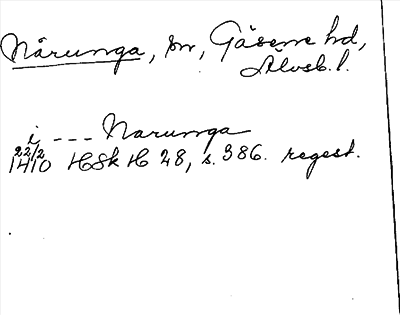 Nårunga, sn, Gäsene hd,
Älvsb. l.
i --- Narunga
22/2
1410 HSH H 28, s. 386. regest.